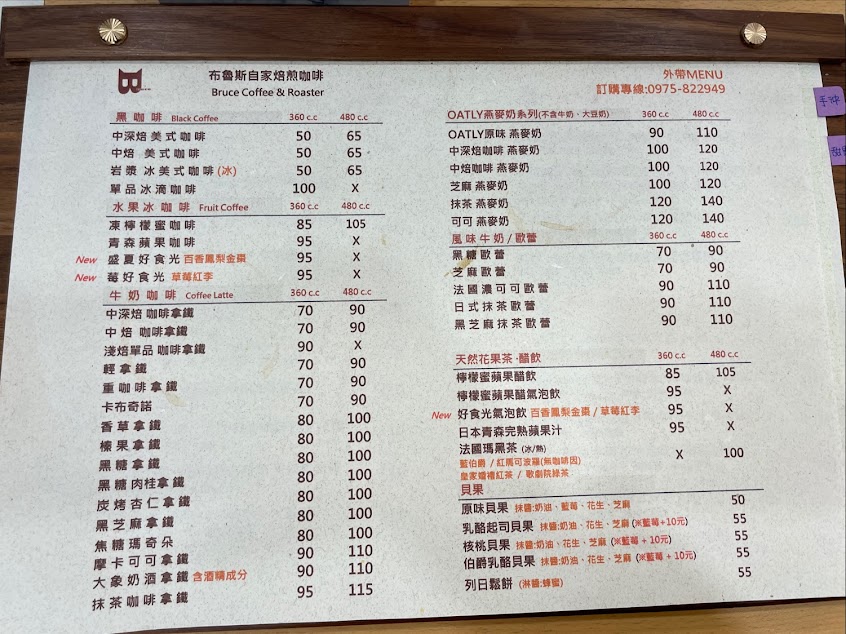 布魯斯自家焙煎咖啡
Bruce Coffee & Roaster
外帶MENU
訂購專線:0975-822949
黑咖啡 Black Coffee 360 c.c 480 c.c
中深焙美式咖啡 50 65
中焙 美式咖啡 50 65
岩漿 冰美式咖啡(冰) 50 65
單品冰滴咖啡 100 X
水果冰咖啡 Fruit Coffee 360 c.c 480 c.c
凍檸檬蜜咖啡 85 105
青森蘋果咖啡 95 X
New 盛夏好食光 百香鳳梨金棗 95 X
New 莓好食光 草莓紅李 95 X
牛奶咖啡 Coffee Latte 360 c.c 480 c.c
中深焙 咖啡拿鐵 70 90
中焙 咖啡拿鐵 70 90
淺焙單品 咖啡拿鐵 90 X
輕拿鐵 70 90
重咖啡拿鐵 70 90
卡布奇諾 70 90
香草拿鐵 80 100
榛果拿鐵 80 100
黑糖拿鐵 80 100
黑糖肉桂拿鐵 80 100
炭烤杏仁拿鐵 80 100
黑芝麻拿鐵 80 100
焦糖瑪奇朵 80 100
摩卡可可拿鐵 90 110
大象奶酒拿鐵 含酒精成分 90 110
抹茶咖啡拿鐵 95 115
OATLY燕麥奶系列(不含牛奶、大豆奶) 360 c.c 480 c.c
OATLY原味 燕麥奶 90 110
中深焙咖啡 燕麥奶 100 120
中焙咖啡 燕麥奶 100 120
芝麻 燕麥奶 100 120
抹茶 燕麥奶 120 140
可可 燕麥奶 120 140
風味牛奶/歐蕾 360 c.c 480 c.c
黑糖歐蕾 70 90
芝麻歐蕾 70 90
法國濃可可歐蕾 90 110
日式抹茶歐蕾 90 110
黑芝麻抹茶歐蕾 90 110
天然花果茶·醋飲 360 c.c 480 c.c
檸檬蜜蘋果醋飲 85 105
檸檬蜜蘋果醋氣泡飲 95 X
New 好食光氣泡飲 百香鳳梨金棗 / 草莓紅李 95 X
日本青森完熟蘋果汁 95 X
法國瑪黑茶 (冰/熱) X 100
藍伯爵 / 紅瑪可波羅(無咖啡因)
皇家婚禮紅茶 / 歌劇院綠茶
貝果
原味貝果 抹醬:奶油、藍莓、花生、芝麻 50
乳酪起司貝果 抹醬:奶油、花生、芝麻(※藍莓+10元) 55
核桃貝果 抹醬:奶油、花生、芝麻(※藍莓 + 10元) 55
伯爵乳酪貝果 抹醬:奶油、花生、芝麻(※藍莓 + 10元) 55
列日鬆餅 (淋醬:蜂蜜) 55
手沖